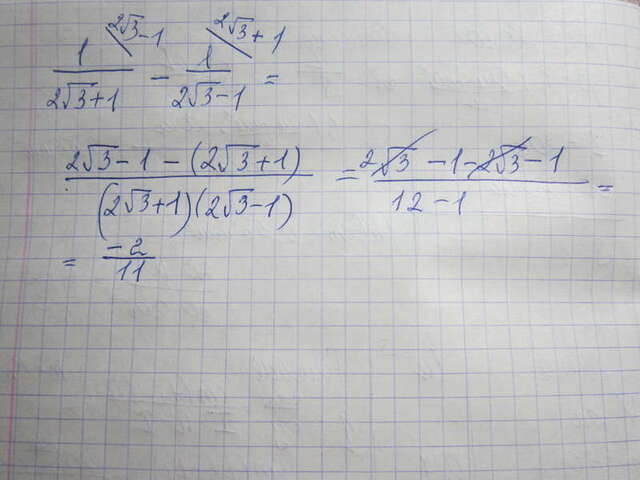 2√3-1 2√3+1
1/(2√3+1) - 1/(2√3-1) =
(2√3-1-(2√3+1))/((2√3+1)(2√3-1)) = (2√3-1-2√3-1)/(12-1) =
= -2/11